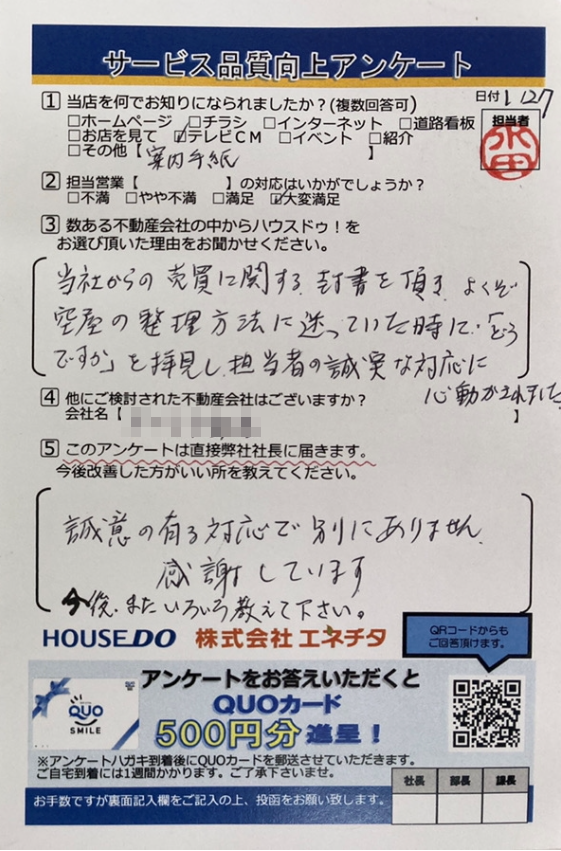 サービス品質向上アンケート
日付 1.127
1 当店を何でお知りになられましたか？(複数回答可)
担当者
□ホームページ □チラシ □インターネット □道路看板
□お店を見て ☑テレビCM □イベント □紹介
□その他【案内手紙】
2 担当営業【 】の対応はいかがでしょうか？
□不満 □やや不満 □満足 ☑大変満足
3 数ある不動産会社の中からハウスドゥ！を
お選び頂いた理由をお聞かせください。
当社からの売買に関する封書を頂き、よくぞ
空屋の整理方法に迷っていた時に、「どう
ですか」を拝見し、担当者の誠実な対応に
心動かされました
4 他にご検討された不動産会社はございますか？
会社名【 】
5 このアンケートは直接弊社社長に届きます。
今後改善した方がいい所を教えてください。
誠意の有る対応で別にありません。
感謝しています
今後、またいろいろ教えて下さい。
HOUSEDO 株式会社 エネチタ
QRコードからも
ご回答頂けます。
アンケートをお答えいただくと
QUOカード
500円分 進呈！
QUO
SMILE
※アンケートハガキ到着後にQUOカードを郵送させていただきます。
ご自宅到着には1週間かかります。ご了承下さいませ。
社長 部長 課長
お手数ですが裏面記入欄をご記入の上、投函をお願い致します。